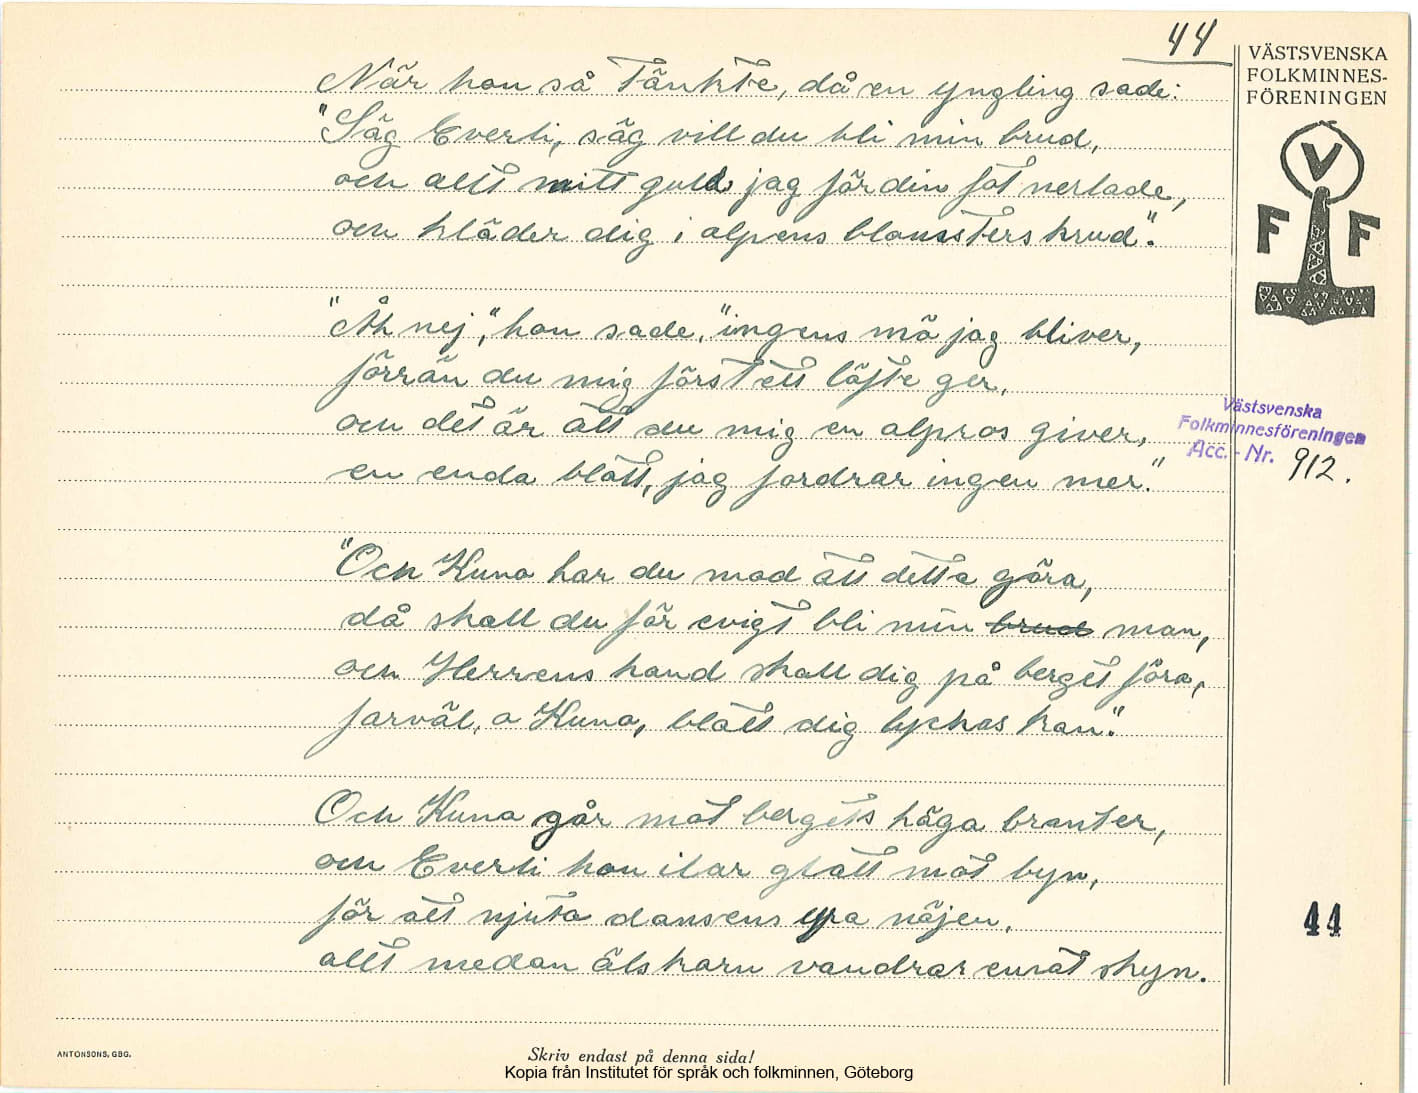 44
VÄSTSVENSKA
FOLKMINNES-
FÖRENINGEN
V
F F
När hon så tänkte, då en yngling sade:
"Säg Everli, säg vill du bli min brud,
och allt mitt guld jag för din fot nerlade,
och kläder dig i alpens blomsterskrud".
"Åh nej", hon sade, "ingens mö jag bliver,
förrän du mig först ett löfte ger,
och det är att du mig en alpros giver,
en enda blott, jag fordrar ingen mer."
Västsvenska
Folkminnesföreningen
Acc. - Nr. 912.
"Och Kuno har du mod att detta göra,
då skall du för evigt bli min brud man,
och Herrens hand skall dig på berget föra,
farväl, o Kuno, blott dig lyckas kan".
Och Kuno går mot bergets höga branter,
och Everli hon ilar glatt mot byn,
för att njuta dansens yra nöjen,
allt medan älskarn vandrar emot skyn.
44
ANTONSONS, GBG.
Skriv endast på denna sida!
Kopia från Institutet för språk och folkminnen, Göteborg